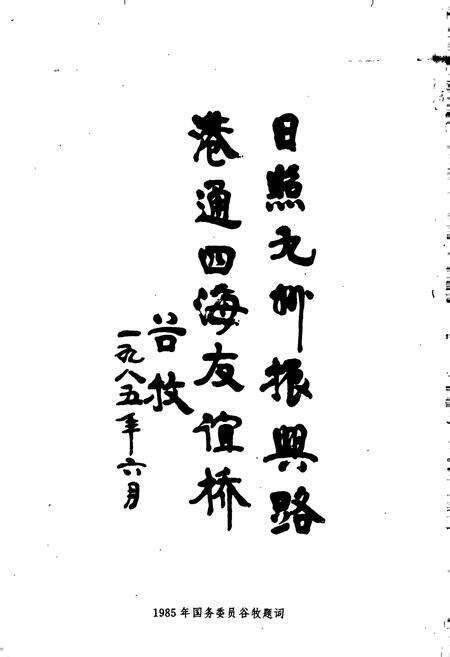 日照九州振興路
港通四海友谊桥
谷牧
一九八五年六月
1985年国务委员谷牧题词